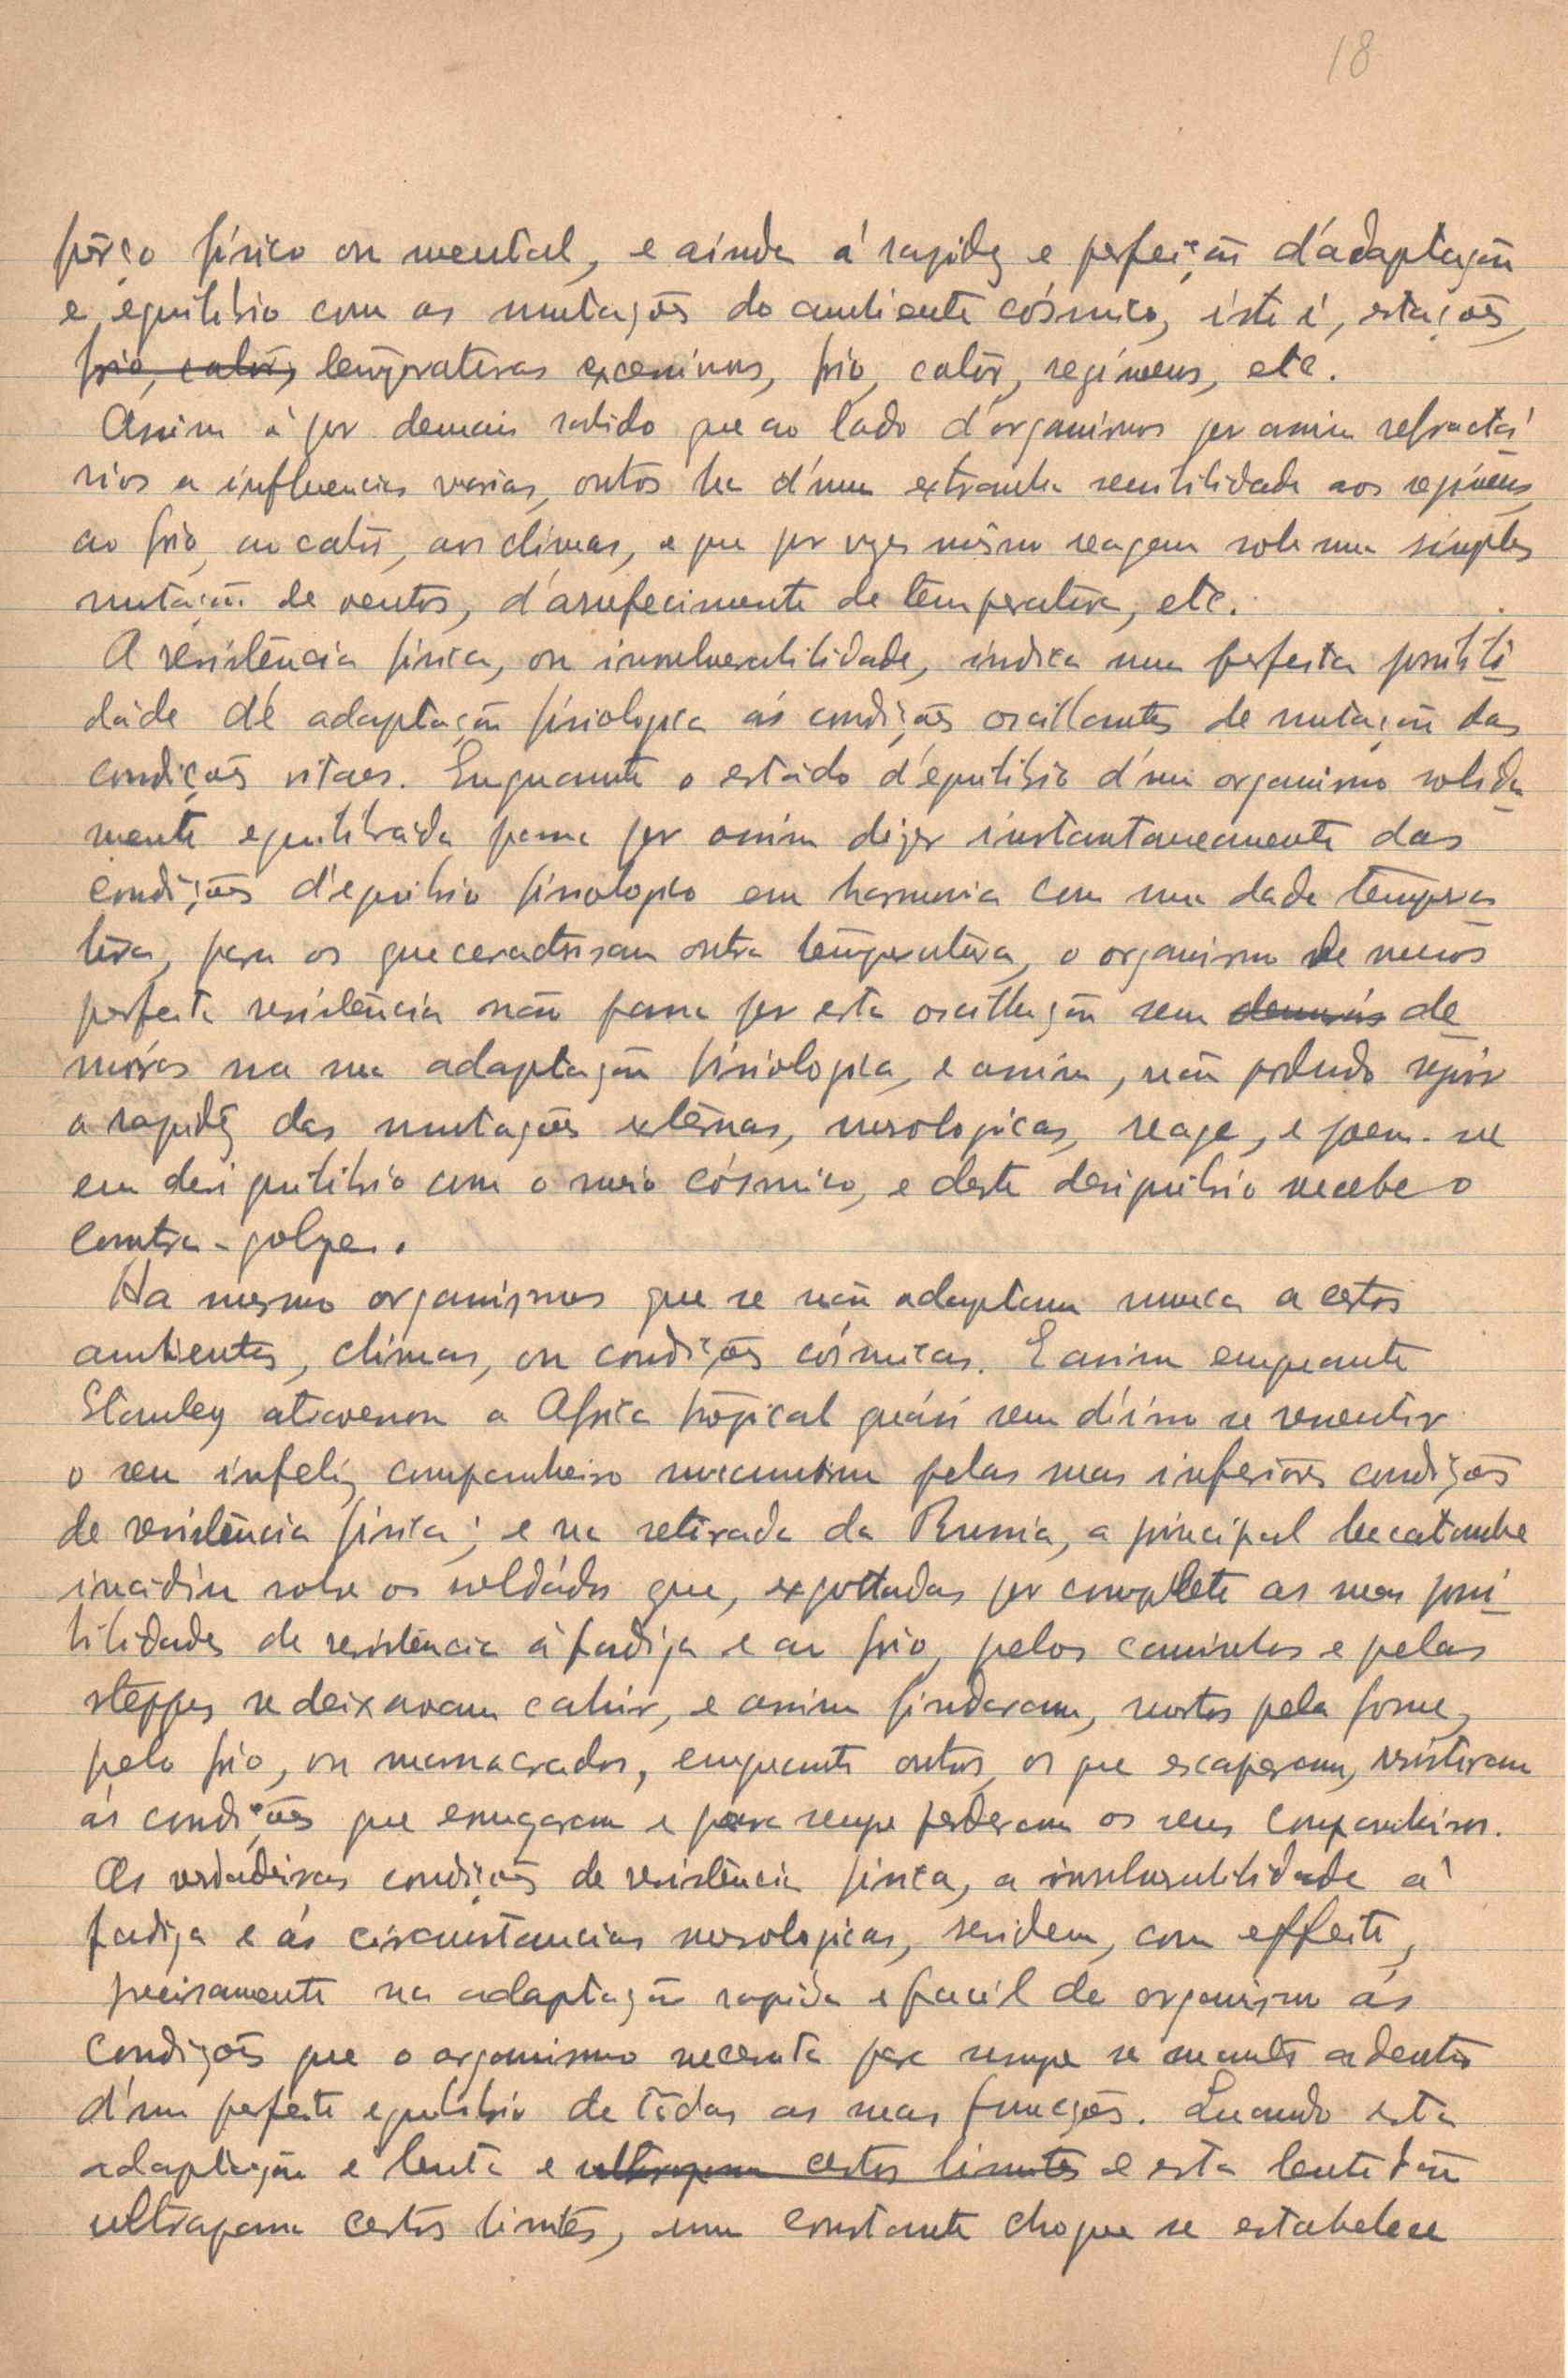 18
fôrço físico ou mental, e ainda á rapidez e perfeição d'adaptação
e equilibrio com as mutações do ambiente cósmico, isto é, estações,
frio, calôr, temperaturas excessivas, frio, calôr, regimens, etc.
Assim é por demais sabido que ao lado d'organismos por assim refractá-
rios a influencias varias, outros ha d'uma extranha sensibilidade aos regimens,
ao frio, ao calôr, aos climas, e que por vezes mêsmo reagem sob uma simples
mutação de ventos, d'arrefecimento de temperatura, etc.
A resistência física, ou invulnerabilidade, indica uma perfeita possibili-
dade de adaptação fisiologica ás condições oscillantes de mutação das
condições vitaes. Enquanto o estádo d'equilibrio d'um organismo solida-
mente equilibrado passa por assim dizer instantaneamente das
condições d'equilibrio fisiologico em harmonia com uma dada tempera-
tura, para os que caractrisam outra temperatura, o organismo de menos
perfeita resistência não passa por esta oscillação sem demoras de-
moras na sua adaptação fisiologica, e assim, não podendo seguir
a rapidêz das mutações externas, nosologicas, reage, e poem-se
em desiquilibrio com o meio cósmico, e deste desiquilibrio recebe o
contra-golpe.
Ha mesmo organismos que se não adaptam nunca a certos
ambientes, climas, ou condições cósmicas. E assim emquanto
Stanley atravessou a Africa tropical quási sem d'isso se resentir
o seu infeliz companheiro sucumbiu pelas suas inferiores condições
de resistência física; e na retirada da Russia, a principal hecatombe
incidiu sobre os soldádos que, exgottadas por completo as suas possi-
bilidades de resistência á fadiga e ao frio, pelos caminhos e pelas
steppes se deixavam cahir, e assim findaram, mortos pela fome,
pelo frio, ou massacrados, emquanto outros, os que escaparam, resistiram
ás condições que esmagaram e para sempre perderam os seus companheiros.
As verdadeiras condições de resistência física, a invulnerabilidade á
fadiga e ás circunstancias nosologicas, residem, com effeito,
precisamente na adaptação rapida e facil do organismo ás
condições que o organismo necessita para sempre se manter adentro
d'um perfeito equilibrio de tôdas as suas funcções. Quando esta
adaptação é lenta e ultrapassa certos limites e esta lentidão
ultrapassa certos limites, um constante choque se estabelece